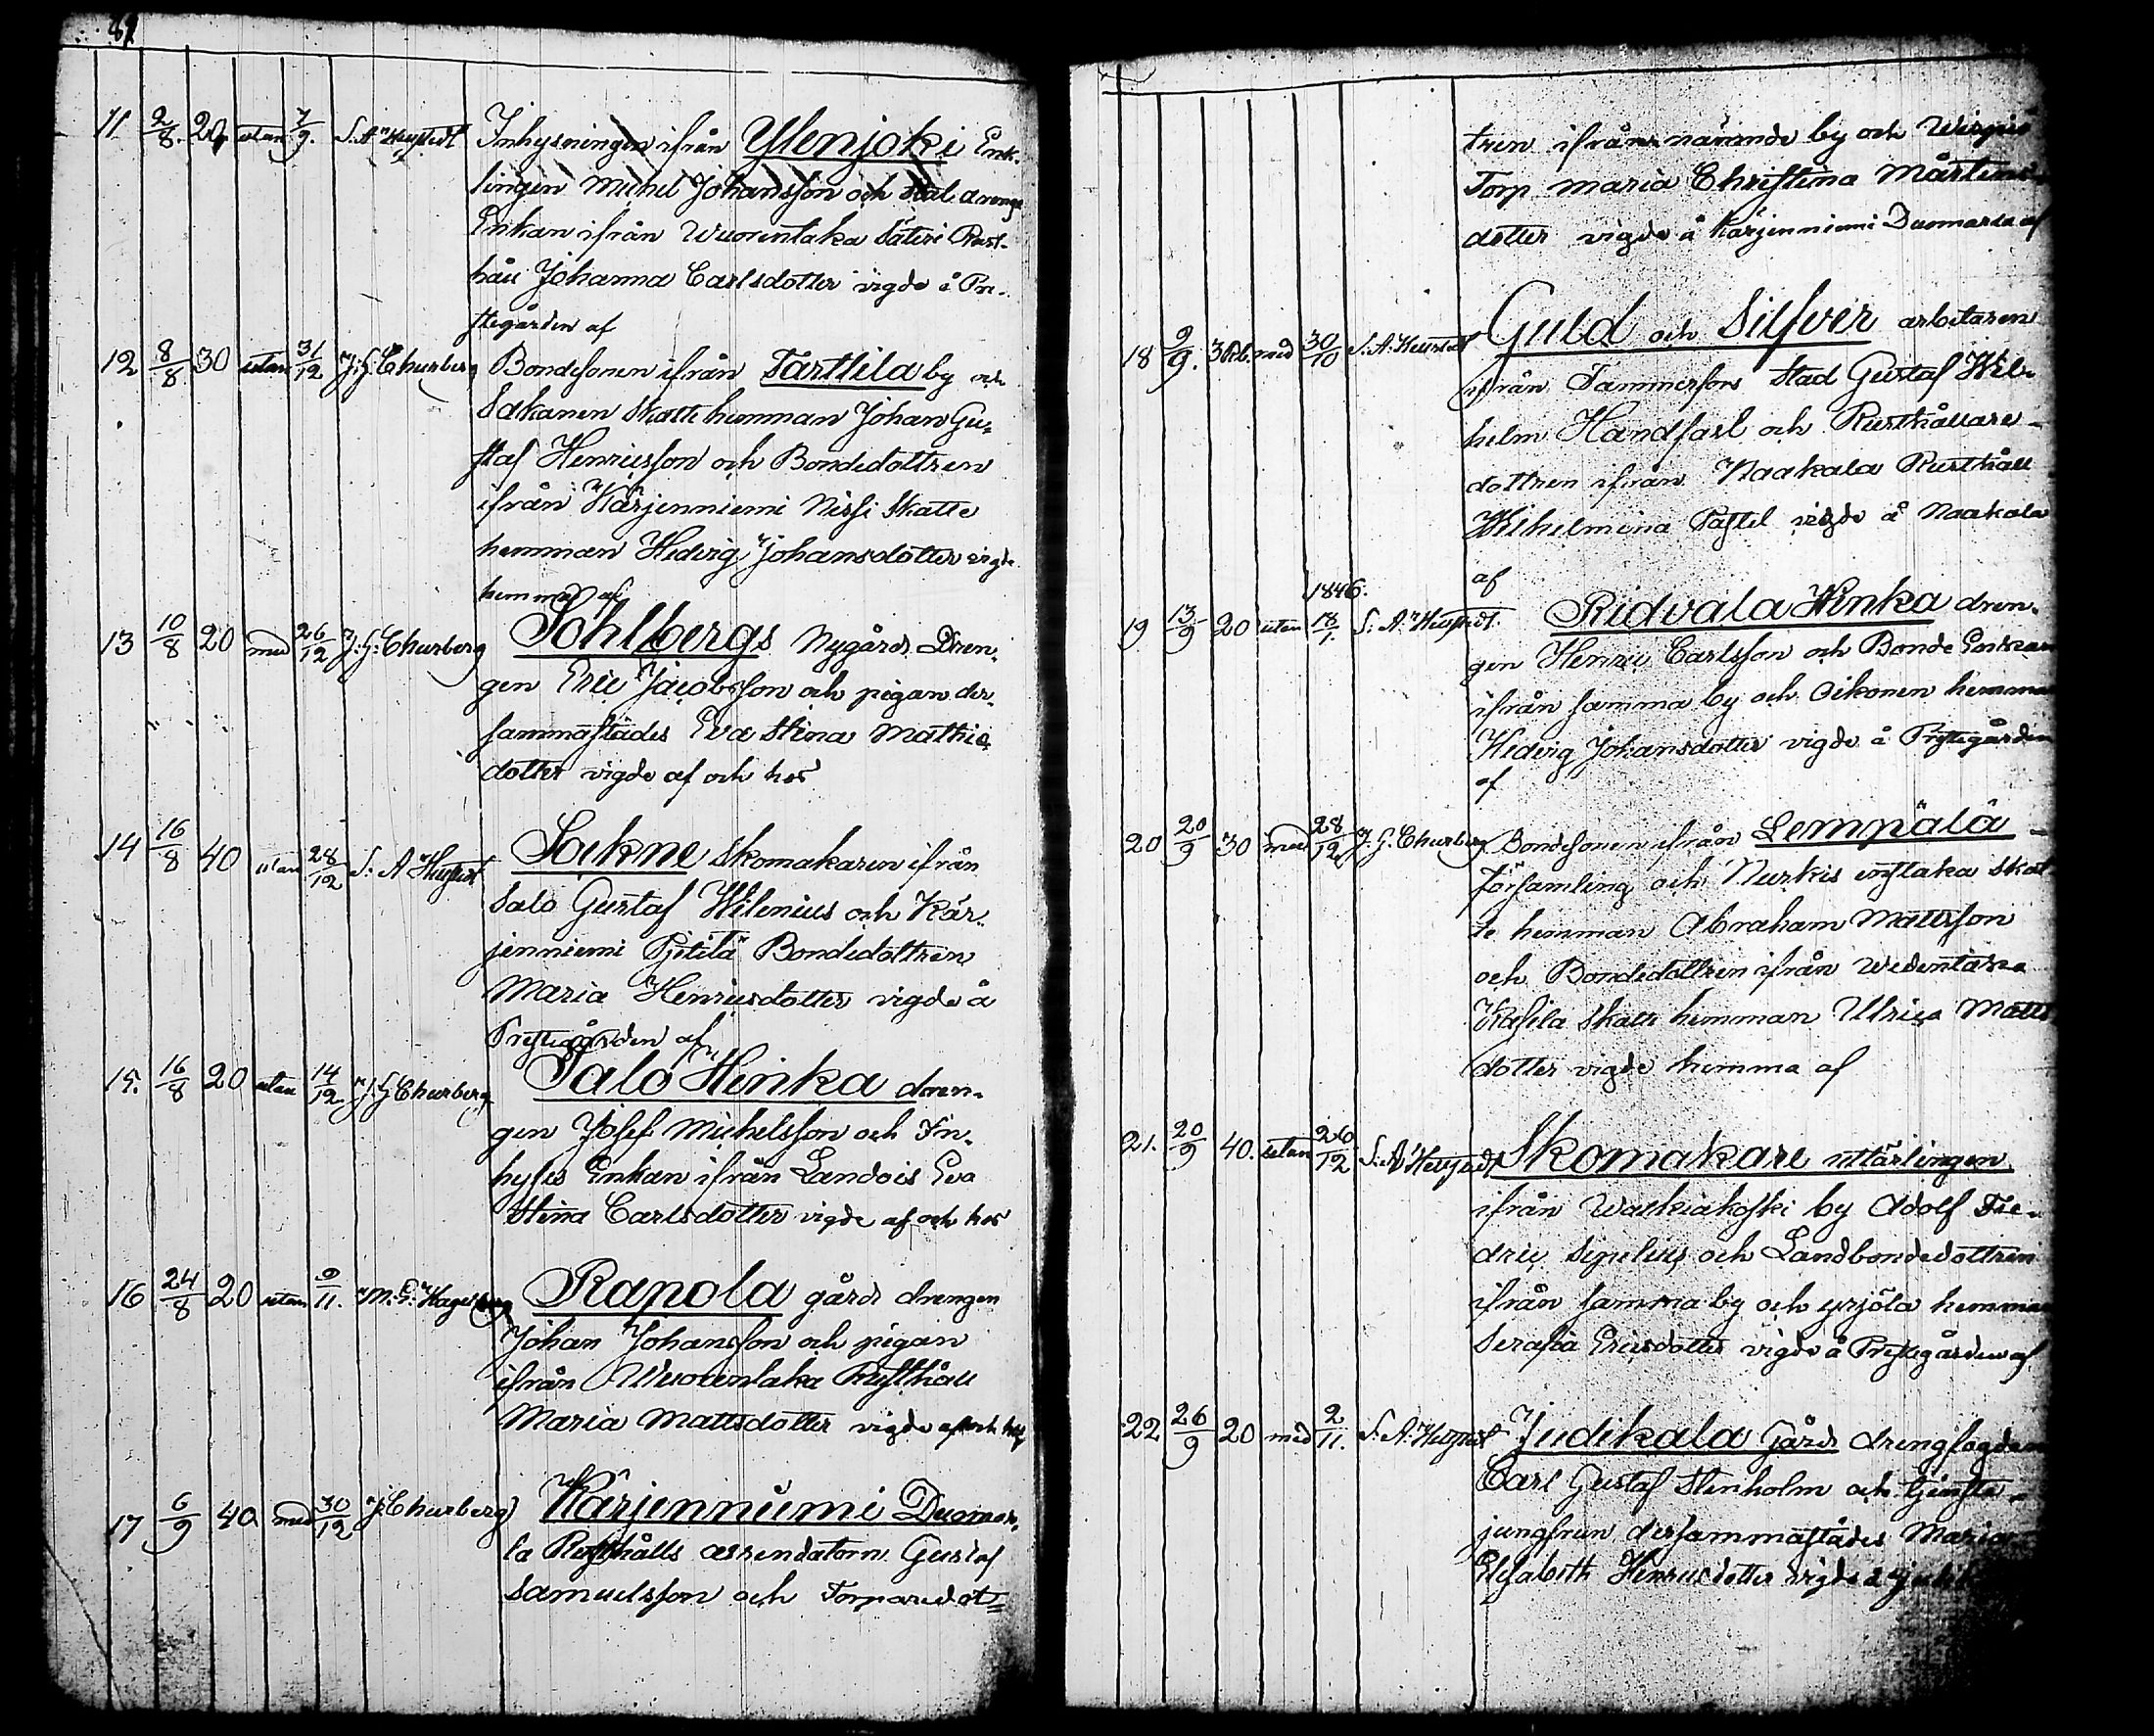 82
11. 2/8. 20 utan 7/9. S. A. Hellstedt Inhysningen ifrån Ylenjoki Enk-
lingen Michel Johansson och Stal drengs
Enkan ifrån Wuorentaka Säteri Rust-
håll Johanna Carlsdotter vigde å Pre-
stegården af
12 8/8 30 utan 31/12 J. G. Churberg Bondesonen ifrån Tarttila by och
Sakanen Skatte hemman Johan Gu-
staf Henricsson och Bondedottren
ifrån Kärjenniemi Nissi Skatte
hemman Hedvig Johansdotter vigde
hemma af
13 10/8 20 med 26/12 J. G. Churberg Sohlbergs Nygårds Dren-
gen Eric Jacobsson och pigan der-
sammastädes Eva Stina Mathie
dotter vigde af och hos
14 16/8 40 utan 28/12 S. A. Hellstedt Sockne Skomakaren ifrån
Salo Gustaf Wilenius och Kär-
jenniemi Pjetilä Bondedottren
Maria Henricsdotter vigde å
Prestegården af
15. 16/8 20 utan 14/12 J. G. Churberg Salo Hinka dren-
gen Josef Michelsson och In-
hyses Enkan ifrån Landois Eva
Stina Carlsdotter vigde af och hos
16 24/8 20 utan 9/11. M. G. Hagelberg Rapola gårds drengen
Johan Johansson och pigan
ifrån Wuorentaka Rusthåll
Maria Mattsdotter vigde af och hos
17 6/9 40 med 30/12 J. Churberg Kärjenniemi Duomar-
la Rusthålls arrendatorn Gustaf
Samuelsson och Torparedot-
tren ifrån nämnde by och
Torp Maria Christina Mårtens
dotter vigde å Kärjenniemi Duomarla af
18 9/9. 3 Rub. med 30/10 S. A. Hellstedt Guld och Silfver arbetaren
ifrån Tammerfors Stad Gustaf Wil-
helm Handfast och Rusthållare-
dottren ifrån Naakala Rusthåll
Wilhelmina Pastel vigde å Naakala
af
19 13/9 20 utan 1846. 18/1. S. A. Hellstedt. Ridvala Hinka dren-
gen Henric Carlsson och Bonde Enkan
ifrån samma by och Oikonen hemman
Hedvig Johansdotter vigde å Prestegården
af
20 20/9 30 med 28/12 J. G. Churberg Bondesonen ifrån Lempälä
församling och Nurkis enstaka Skat-
te hemman Abraham Mattsson
och Bondedottren ifrån Wedentaka
Wasila Skatte hemman Ulrica Matts
dotter vigde hemma af
21. 20/9 40. utan 26/12 S. A. Hellstedt Skomakare utlärlingen
ifrån Walkiakoski by Adolf Fre-
dric och Landbondedottren
ifrån samma by och yrjölä hemman
Serafia Ericsdotter vigde å Prestegården af
22 26/9 20 med 2/11. S. A. Hellstedt Judikala Gårds drengfogden
Carl Gustaf Stenholm och tjenste-
jungfrun dersammastädes Maria
Elisabeth Henricsdotter vigde å